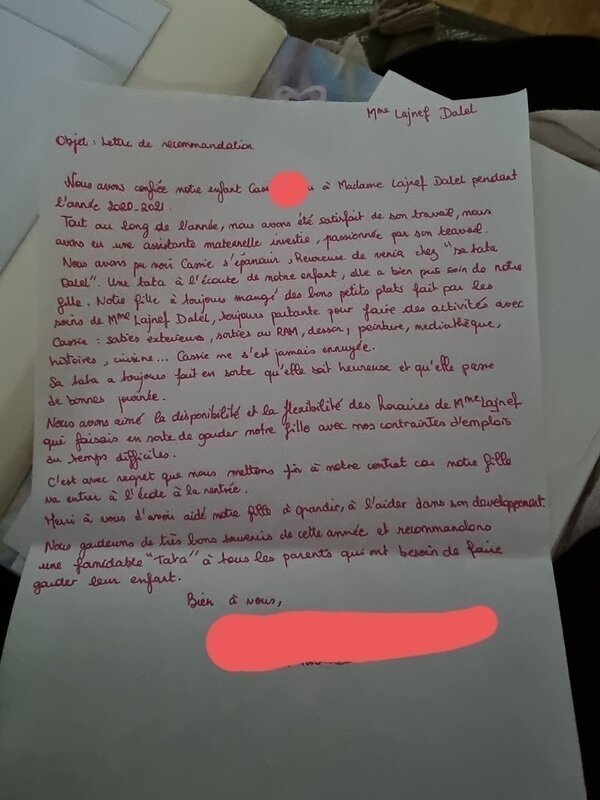 Mme Lajnef Dalel
Objet : Lettre de recommandation
Nous avons confiée notre enfant Cass u à Madame Lajnef Dalel pendant
l'année 2020-2021.
Tout au long de l'année, nous avons été satisfait de son travail, nous
avons eu une assistante maternelle investie, passionnée par son travail.
Nous avons pu voir Cassie s'épanouir, heureuse de venir chez "sa tata
Dalel". Une tata à l'écoute de notre enfant, elle a bien pris soin de notre
fille. Notre fille à toujours mangé des bons petits plats fait par les
soins de Mme Lajnef Dalel, toujours partante pour faire des activités avec
Cassie : sorties exterieurs, sorties au RAM, dessin, peinture, mediathèque,
histoires, cuisine... Cassie ne s'est jamais ennuyée.
Sa tata a toujours fait en sorte qu'elle soit heureuse et qu'elle passe
de bonnes journée.
Nous avons aimé la disponibilité et la flexibilité des horaires de Mme Lajnef
qui faisais en sorte de garder notre fille avec nos contraintes d'emplois
du temps difficiles.
C'est avec regret que nous mettons fin à notre contrat car notre fille
va entrer à l'école à la rentrée.
Merci à vous d'avoir aidé notre fille à grandir, à l'aider dans son developpement.
Nous garderons de très bons souvenirs de cette année et recommandons
une formidable "Tata" à tous les parents qui ont besoin de faire
garder leur enfant.
Bien à vous,